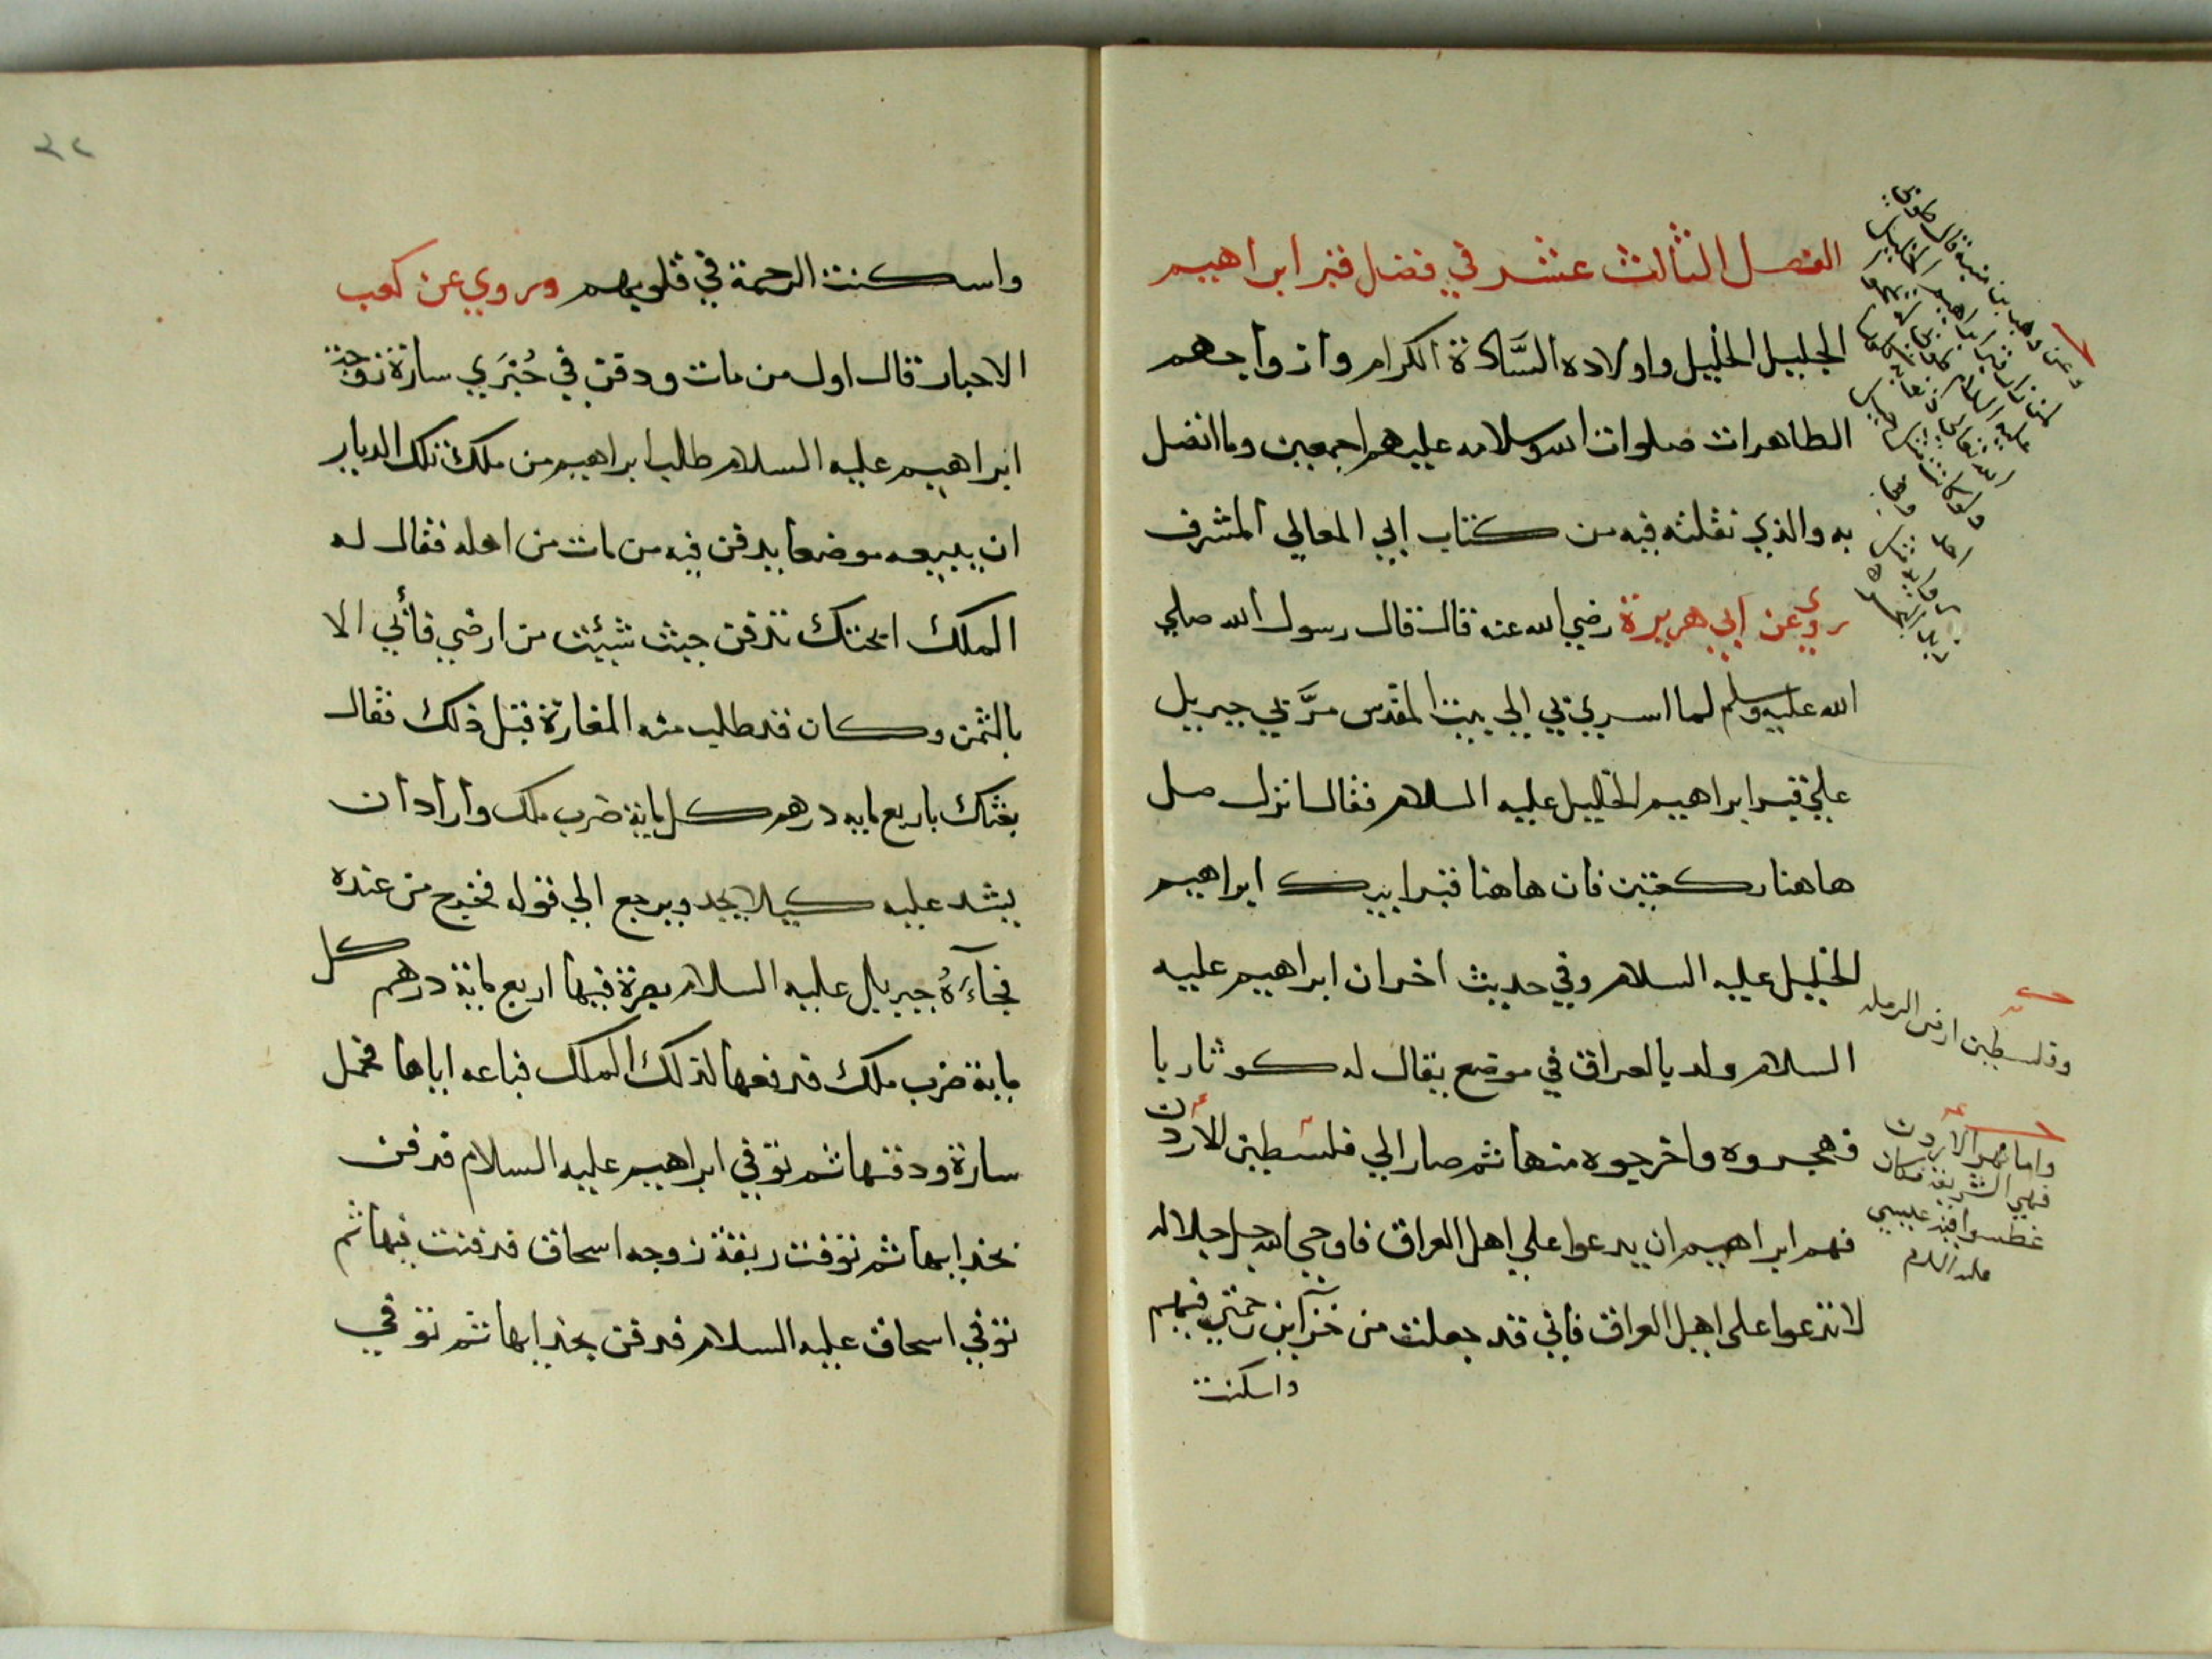 الفصل الثالث عشر في فضل قبر ابراهيم
الجليل الخليل واولاده السَّادة الكرام وازواجهم
الطاهرات صلوات الله وسلامه عليهم اجمعين وما اتصل
به والذي نقلته فيه من كتاب ابي المعالي المشرف
روي عن ابي هريرة رضي الله عنه قال قال رسول الله صلي
الله عليه وسلم لما اسري بي الي بيت المقدس مرَّ بي جبريل
علي قبر ابراهيم الخليل عليه السلام فقال انزل صل
هاهنا ركعتين فان هاهنا قبر ابيك ابراهيم
الخليل عليه السلام وفي حديث اخر ان ابراهيم عليه
السلام ولد بالعراق في موضع يقال له كوثاربا
فهجروه واخرجوه منها ثم صار الي فلسطين الأردن
فهم ابراهيم ان يدعوا علي اهل العراق فاوحي الله جل جلاله
لا تدعوا على اهل العراق فاني قد جعلت من خزآين رحمتي فيهم
واسكنت
وعن وهب بن منبه قال طوبي
لمن زار قبر ابراهيم الخليل
عليه السلام
وفلسطين ارض الرمله
واما نهر الأردن
فهي الشريعة مكان
غطسوا فيه عيسي
عليه السلام
٢٢
واسكنت الرحمة في قلوبهم وروي عن كعب
الاحبار قال اول من مات ودفن في حَبْرَي سارة زوجة
ابراهيم عليه السلام طلب ابراهيم من ملك تلك الديار
ان يبيعه موضعا يدفن فيه من مات من اهله فقال له
الملك ابحتك تدفن حيث شيئت من ارضي فأبي الا
بالثمن وكان قد طلب منه المغارة قبل ذلك فقال
بعتك باربع مايه درهم كل ماية ضرب ملك واراد ان
يشد عليه كيلا يجد ويرجع الي قوله فخرج من عنده
فجآءَهُ جبريل عليه السلام بصرة فيها اربع ماية درهم كل
ماية ضرب ملك فدفعها لذلك الملك فباعه اياها فحمل
سارة ودفنها ثم توفي ابراهيم عليه السلام فدفن
بحذايها ثم توفت ربقة زوجه اسحاق فدفنت فيها ثم
توفي اسحاق عليه السلام فدفن بحذايها ثم توفي